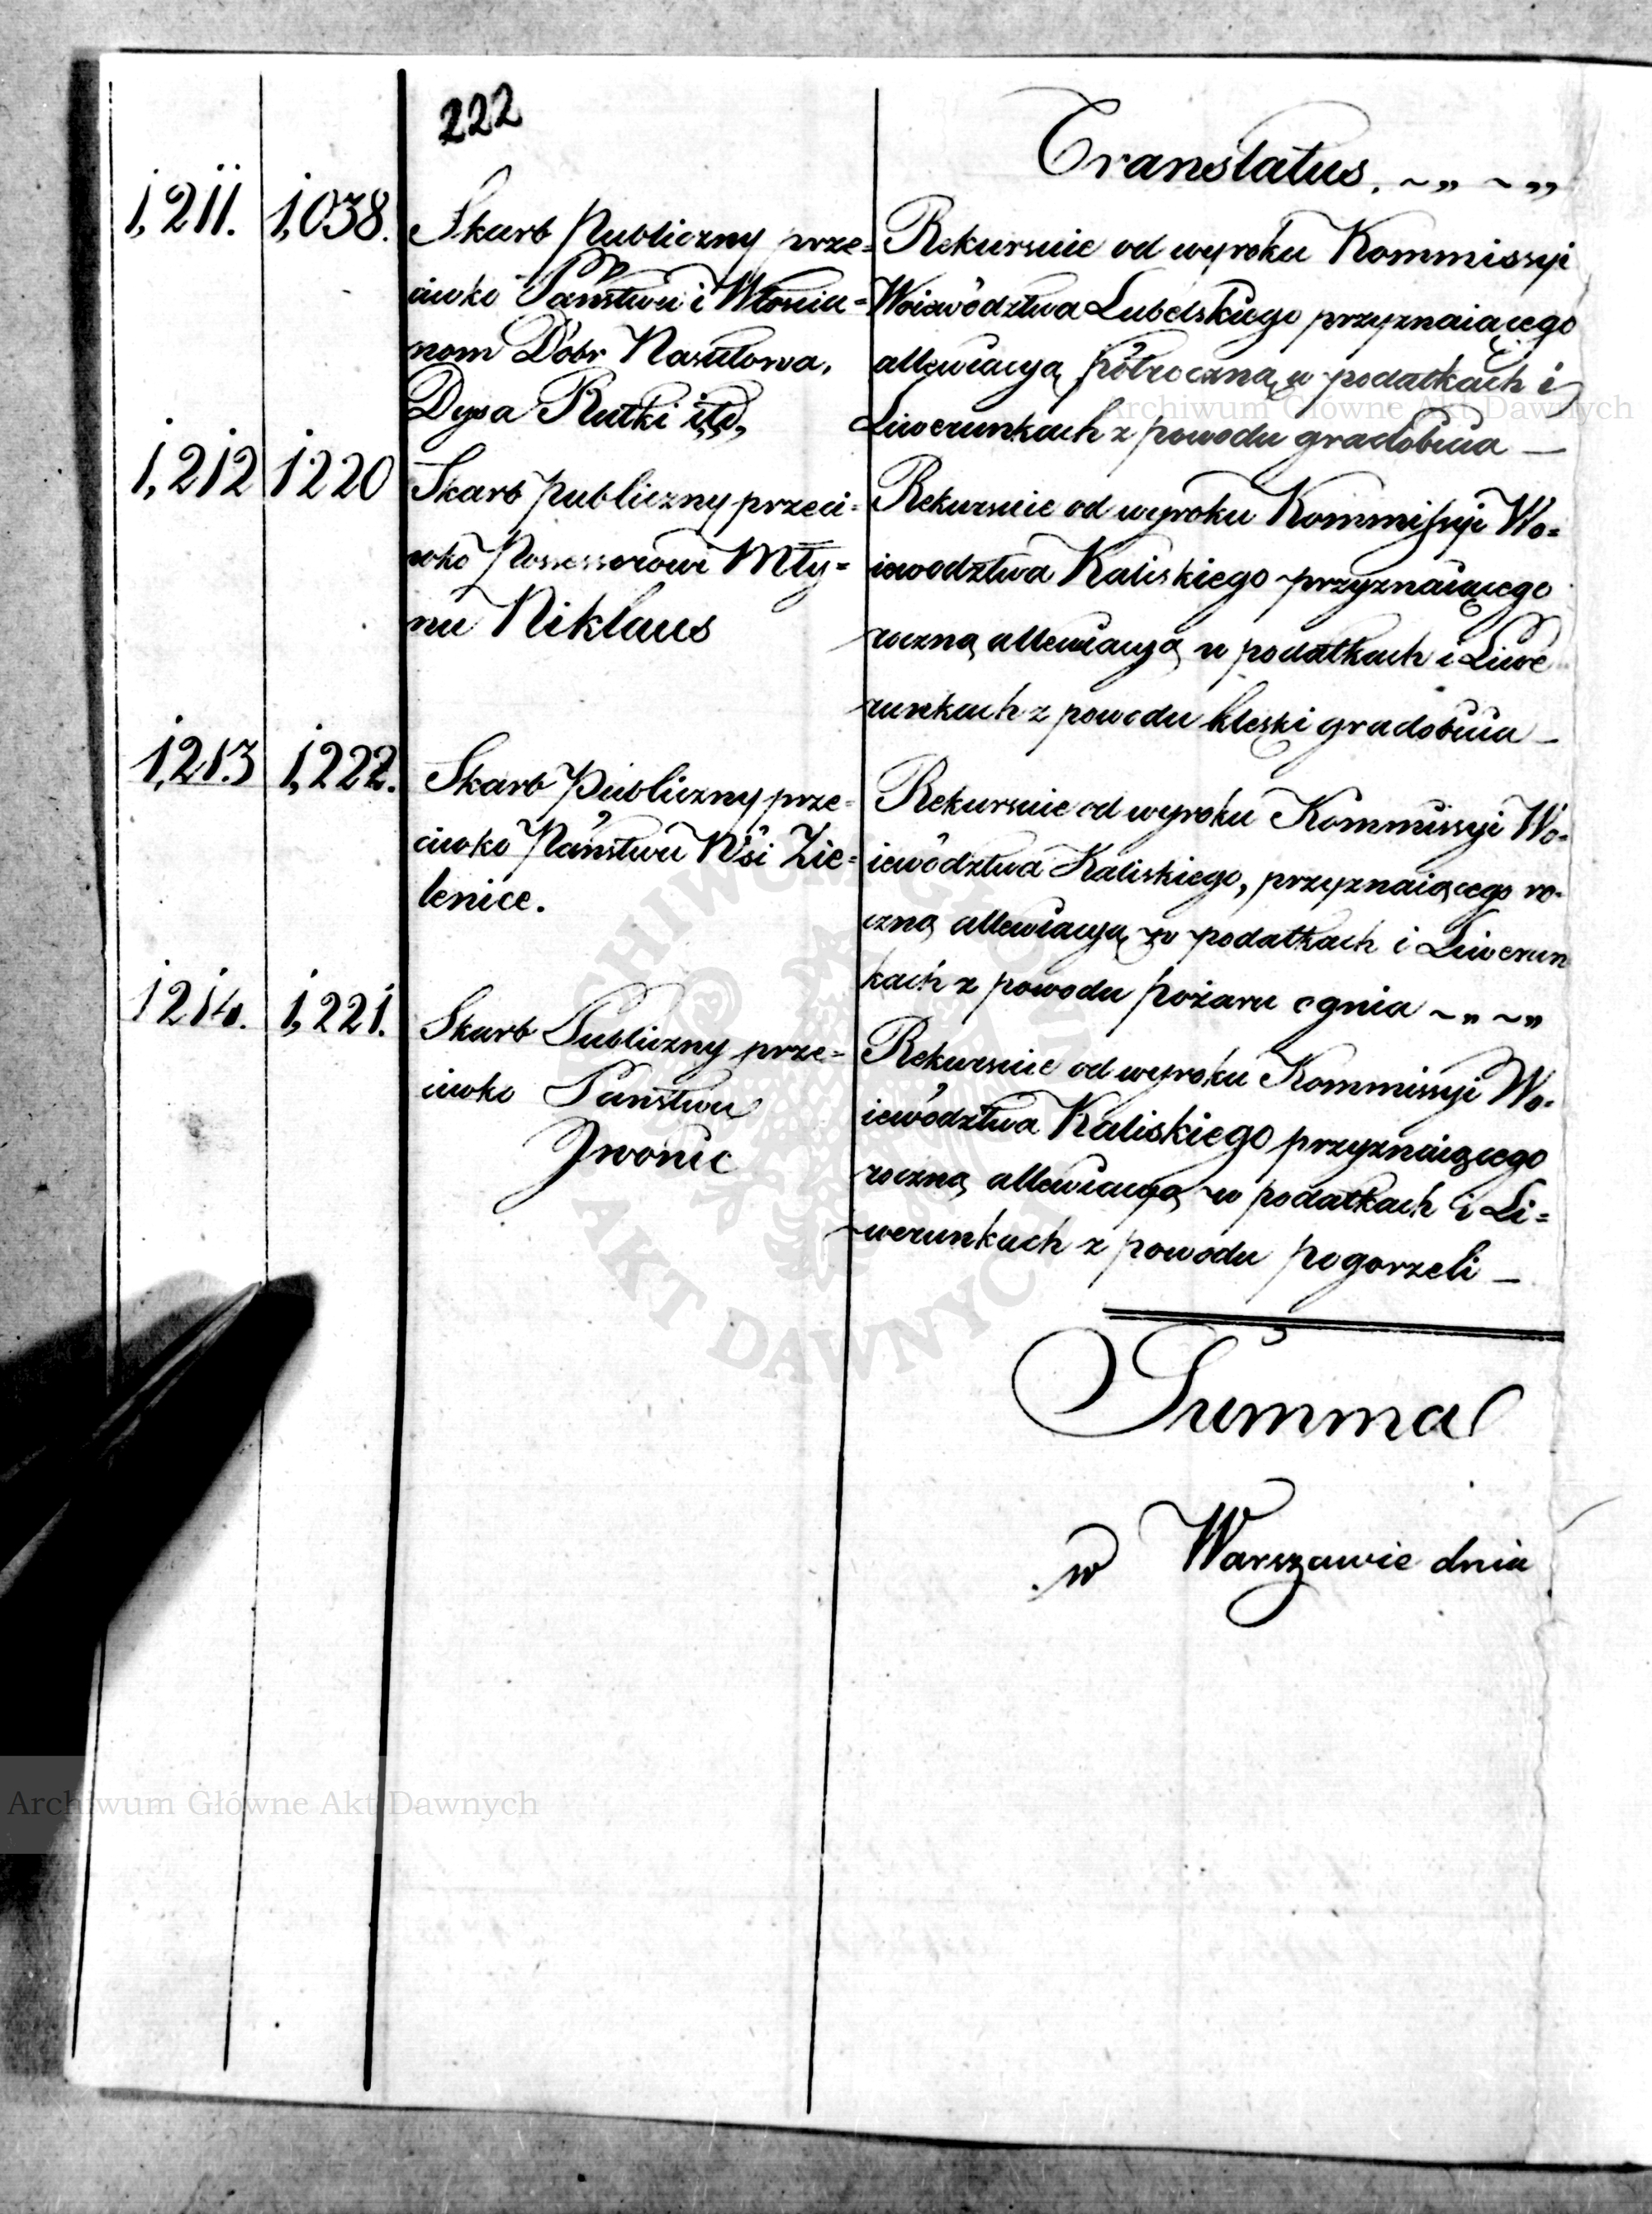 222
Translatus. ~ „ ~ „
1,211. 1,038. Skarb Publiczny prze=
ciwko Państwu i Włościa=
nom Dóbr Nasutowa,
Dysa Rutki itd,
Rekursuie od wyroku Kommissyi
Woiewództwa Lubelskiego przyznaiącego
allewiacyą półroczną w podatkach i
Liwerunkach z powodu gradobicia —
1,212 1220 Skarb publiczny przeci=
wko Possessorowi Mły=
nu Niklaus
Rekursuie od wyroku Kommissyi Wo=
iewodztwa Kaliskiego przyznaiącego
roczną allewiacyą w podatkach i Liwe
runkach z powodu klęski gradobicia —
1,213 1,222. Skarb Publiczny prze=
ciwko Państwu Wsi Zie=
lenice.
Rekursuie od wyroku Kommissyi Wo=
iewództwa Kaliskiego, przyznaiącego ro=
czną allewiacyą w podatkach i Liwerun
kach z powodu pożaru ognia ~ „ ~ „
1214. 1,221. Skarb Publiczny prze=
ciwko Państwu
Jwonic
Rekursuie od wyroku Kommissyi Wo=
iewództwa Kaliskiego przyznaiącego
roczną allewiacyą w podatkach i Li=
werunkach z powodu pogorzeli —
Summa
w Warszawie dnia
Archiwum Główne Akt Dawnych
Archiwum Główne Akt Dawnych
AKT DAWNYCH